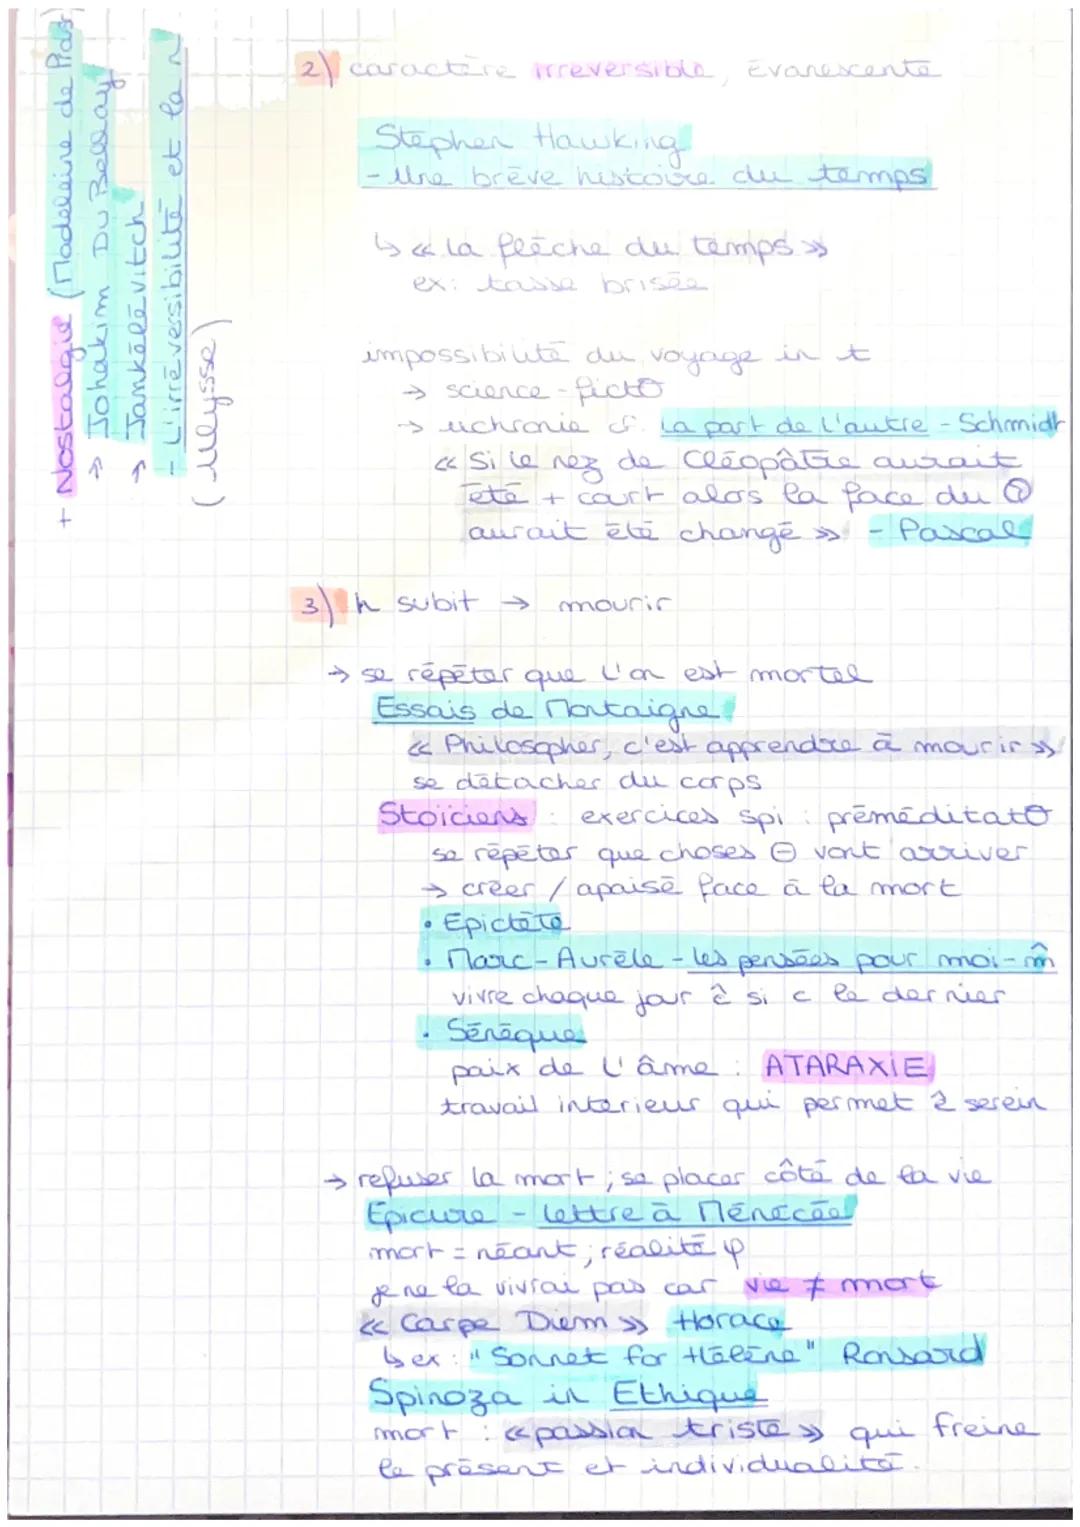 + Nostalgie (Madeleine de
→ Johakim Du Bellay
→ Jankélévitch
- L'irréversibilité et la n
(Ulysse)
2) caractère irreversible, évanescente
Stephen Hawking
- Une brève histoire du temps
↳ « la flèche du temps »
ex: tasse brisée
impossibilité du voyage in t
→ science-ficto
→ uchronie cf. La part de l'autre - Schmidt
« Si le nez de Cléopâtre aurait
été + court alors la face du
aurait été changé » - Pascal
3) h subit → mourir
→ se répéter que l'on est mortel
Essais de Montaigne
« Philosopher, c'est apprendre à mourir »
se détacher du corps
Stoïciens : exercices spi : préméditato
se répéter que choses ⊖ vont arriver
→ créer / apaisé face à la mort
• Epictète
• Marc-Aurèle - les pensées pour moi-m̂
vivre chaque jour ĉ si c le dernier
• Sénèque
paix de l'âme : ATARAXIE
travail interieur qui permet ê serein
→ refuser la mort ; se placer côté de la vie
Epicure - lettre à Ménécée
mort = néant ; réalité φ
je ne la vivrai pas car vie ≠ mort
« Carpe Diem » Horace
↳ ex : "Sonnet for Hélène" Ronsard
Spinoza in Ethique
mort : « passion triste » qui freine
le présent et individualité.